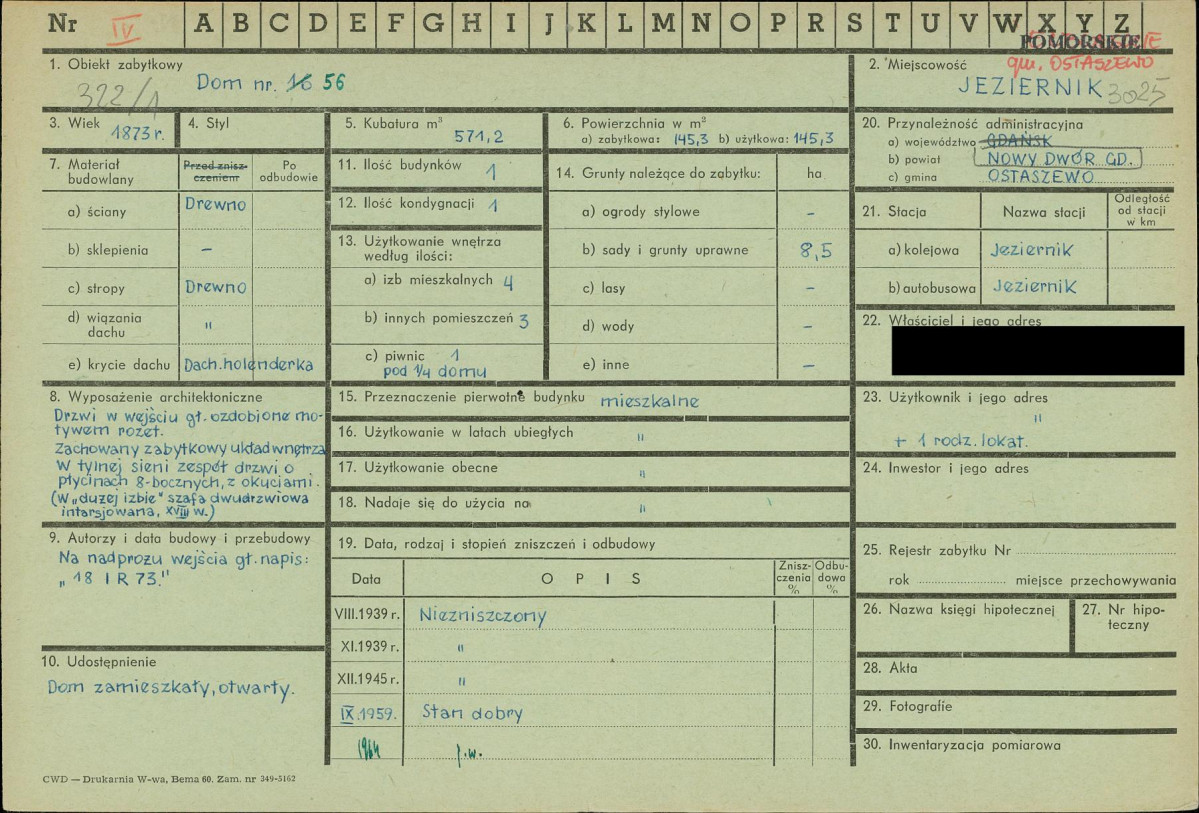 Nr IV A B C D E F G H I J K L M N O P R S T U V W X Y Z
POMORSKIE
gm. OSTASZEWO
1. Obiekt zabytkowy
322/1
Dom nr. 16 56
2. Miejscowość
JEZIERNIK 3025
3. Wiek 1873 r.
4. Styl
5. Kubatura m³
571,2
6. Powierzchnia w m²
a) zabytkowa: 145,3 b) użytkowa: 145,3
7. Materiał budowlany
Przed zniszczeniem
Po odbudowie
a) ściany Drewno
b) sklepienia –
c) stropy Drewno
d) wiązania dachu "
e) krycie dachu Dach. holenderka
8. Wyposażenie architektoniczne
Drzwi w wejściu gł. ozdobione mo-
tywem rozet.
Zachowany zabytkowy układ wnętrza
W tylnej sieni zespół drzwi o
płycinach 8-bocznych, z okuciami.
(W „dużej izbie" szafa dwudrzwiowa
intarsjowana, XVIII w.)
9. Autorzy i data budowy i przebudowy
Na nadprożu wejścia gł. napis:
„18 I R 73."
10. Udostępnienie
Dom zamieszkały, otwarty.
11. Ilość budynków 1
12. Ilość kondygnacji 1
13. Użytkowanie wnętrza
według ilości:
a) izb mieszkalnych 4
b) innych pomieszczeń 3
c) piwnic 1
pod 1/4 domu
14. Grunty należące do zabytku: ha
a) ogrody stylowe –
b) sady i grunty uprawne 8,5
c) lasy –
d) wody –
e) inne –
15. Przeznaczenie pierwotne budynku mieszkalne
16. Użytkowanie w latach ubiegłych "
17. Użytkowanie obecne "
18. Nadaje się do użycia na "
19. Data, rodzaj i stopień zniszczeń i odbudowy
Data OPIS Znisz-
czenia
% Odbu-
dowa
%
VIII.1939 r. Niezniszczony
XI.1939 r. "
XII.1945 r. "
IX.1959. Stan dobry
1964 j.w.
20. Przynależność administracyjna
a) województwo GDAŃSK
b) powiat NOWY DWÓR GD.
c) gmina OSTASZEWO
21. Stacja Nazwa stacji Odległość
od stacji
w km
a) kolejowa Jeziernik
b) autobusowa Jeziernik
22. Właściciel i jego adres
23. Użytkownik i jego adres
"
+ 1 rodz. lokat.
24. Inwestor i jego adres
25. Rejestr zabytku Nr
rok miejsce przechowywania
26. Nazwa księgi hipotecznej
27. Nr hipo-
teczny
28. Akta
29. Fotografie
30. Inwentaryzacja pomiarowa
CWD — Drukarnia W-wa, Bema 60. Zam. nr 349-5162